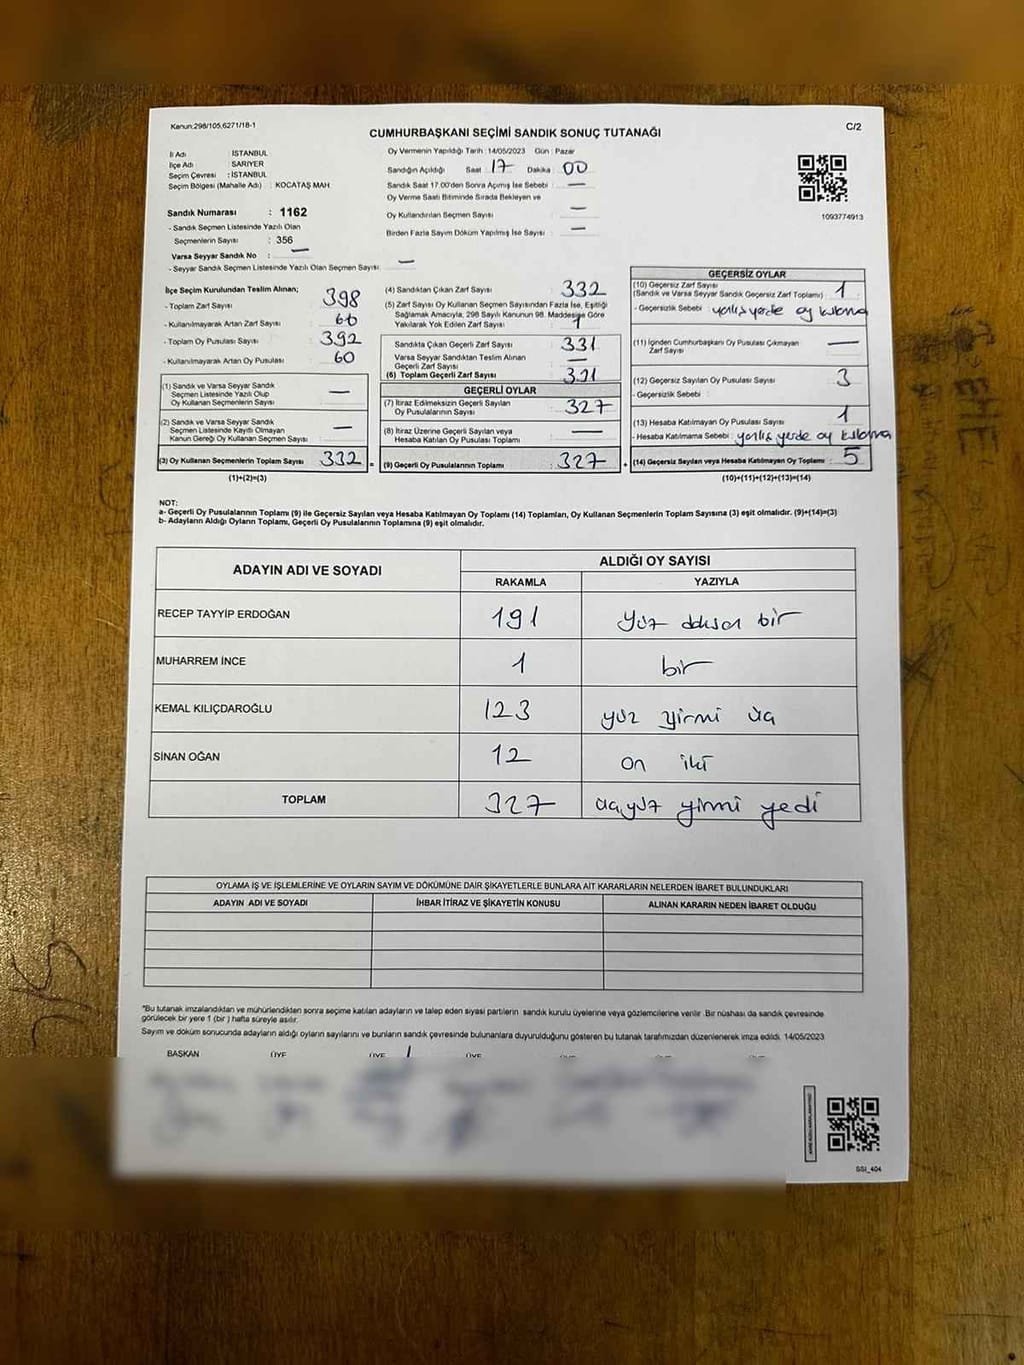 Kanun:298/105,6271/18-1
C/2
CUMHURBAŞKANI SEÇİMİ SANDIK SONUÇ TUTANAĞI
İl Adı : İSTANBUL
İlçe Adı : SARIYER
Seçim Çevresi : İSTANBUL
Seçim Bölgesi (Mahalle Adı) : KOCATAŞ MAH.
Sandık Numarası : 1162
- Sandık Seçmen Listesinde Yazılı Olan
Seçmenlerin Sayısı : 356
Varsa Seyyar Sandık No : —
- Seyyar Sandık Seçmen Listesinde Yazılı Olan Seçmen Sayısı: —
Oy Vermenin Yapıldığı Tarih : 14/05/2023 Gün : Pazar
Sandığın Açıldığı Saat : 17 Dakika : 00
Sandık Saat 17.00'den Sonra Açımış İse Sebebi : —
Oy Verme Saati Bitiminde Sırada Bekleyen ve
Oy Kullandırılan Seçmen Sayısı : —
Birden Fazla Sayım Döküm Yapılmış İse Sayısı : —
1093774913
İlçe Seçim Kurulundan Teslim Alınan;
- Toplam Zarf Sayısı : 398
- Kullanılmayarak Artan Zarf Sayısı : 66
- Toplam Oy Pusulası Sayısı : 392
- Kullanılmayarak Artan Oy Pusulası : 60
(1) Sandık ve Varsa Seyyar Sandık
Seçmen Listesinde Yazılı Olup
Oy Kullanan Seçmenlerin Sayısı : —
(2) Sandık ve Varsa Seyyar Sandık
Seçmen Listesinde Kayıtlı Olmayan
Kanun Gereği Oy Kullanan Seçmen Sayısı : —
(3) Oy Kullanan Seçmenlerin Toplam Sayısı : 332 =
(1)+(2)=(3)
(4) Sandıktan Çıkan Zarf Sayısı : 332
(5) Zarf Sayısı Oy Kullanan Seçmen Sayısından Fazla İse, Eşitliği
Sağlamak Amacıyla; 298 Sayılı Kanunun 98. Maddesine Göre
Yakılarak Yok Edilen Zarf Sayısı : 1
Sandıkta Çıkan Geçerli Zarf Sayısı : 331
Varsa Seyyar Sandıktan Teslim Alınan
Geçerli Zarf Sayısı : —
(6) Toplam Geçerli Zarf Sayısı : 331
GEÇERLİ OYLAR
(7) İtiraz Edilmeksizin Geçerli Sayılan
Oy Pusulalarının Sayısı : 327
(8) İtiraz Üzerine Geçerli Sayılan veya
Hesaba Katılan Oy Pusulaları Toplamı : —
(9) Geçerli Oy Pusulalarının Toplamı : 327 +
GEÇERSİZ OYLAR
(10) Geçersiz Zarf Sayısı
(Sandık ve Varsa Seyyar Sandık Geçersiz Zarf Toplamı) : 1
- Geçersizlik Sebebi : yanlış yerde oy kullanma
(11) İçinden Cumhurbaşkanı Oy Pusulası Çıkmayan
Zarf Sayısı : —
(12) Geçersiz Sayılan Oy Pusulası Sayısı : 3
- Geçersizlik Sebebi :
(13) Hesaba Katılmayan Oy Pusulası Sayısı : 1
- Hesaba Katılmama Sebebi : yanlış yerde oy kullanma
(14) Geçersiz Sayılan veya Hesaba Katılmayan Oy Toplamı : 5
(10)+(11)+(12)+(13)=(14)
NOT:
a- Geçerli Oy Pusulalarının Toplamı (9) ile Geçersiz Sayılan veya Hesaba Katılmayan Oy Toplamı (14) Toplamları, Oy Kullanan Seçmenlerin Toplam Sayısına (3) eşit olmalıdır. (9)+(14)=(3)
b- Adayların Aldığı Oyların Toplamı, Geçerli Oy Pusulalarının Toplamına (9) eşit olmalıdır.
ADAYIN ADI VE SOYADI
ALDIĞI OY SAYISI
RAKAMLA YAZIYLA
RECEP TAYYİP ERDOĞAN 191 yüz doksan bir
MUHARREM İNCE 1 bir
KEMAL KILIÇDAROĞLU 123 yüz yirmi üç
SİNAN OĞAN 12 on iki
TOPLAM 327 üçyüz yirmi yedi
OYLAMA İŞ VE İŞLEMLERİNE VE OYLARIN SAYIM VE DÖKÜMÜNE DAİR ŞİKAYETLERLE BUNLARA AİT KARARLARIN NELERDEN İBARET BULUNDUKLARI
ADAYIN ADI VE SOYADI İHBAR İTİRAZ VE ŞİKAYETİN KONUSU ALINAN KARARIN NEDEN İBARET OLDUĞU
"Bu tutanak imzalandıktan ve mühürlendikten sonra seçime katılan adayların ve talep eden siyasi partilerin sandık kurulu üyelerine veya gözlemcilerine verilir. Bir nüshası da sandık çevresinde
görülecek bir yere 1 (bir ) hafta süreyle asılır.
Sayım ve döküm sonucunda adayların aldığı oyların sayılarını ve bunların sandık çevresinde bulunanlara duyurulduğunu gösteren bu tutanak tarafımızdan düzenlenerek imza edildi. 14/05/2023
BAŞKAN ÜYE ÜYE ÜYE ÜYE ÜYE
SSI_404